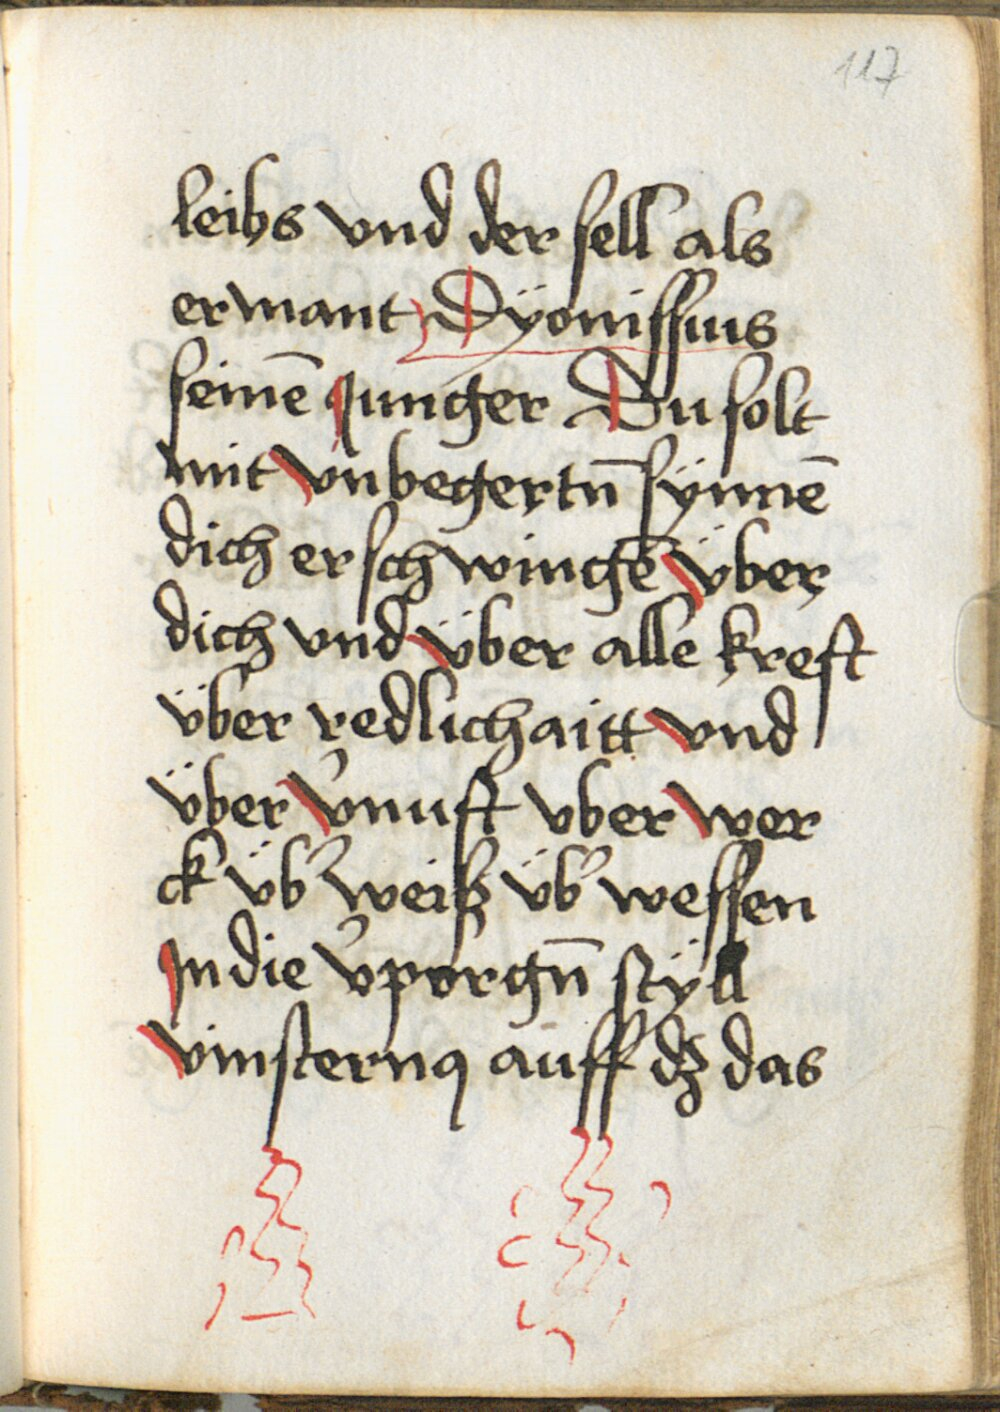 117
leibs vnd der sell als
ermant Dÿonissius
seinē Junger Du solt
mit vnbegertn̄ sÿnnē
dich erschwingē vͤber
dich vnd v̈ber alle kreft
v̈ber redlichaitt vnd
v̈ber v̾nuft vber wer
ck v̈b̾ weiß v̈b̾ wessen
Jn die v̾porgn̄ stÿll
vinsternꝯ auff dz das